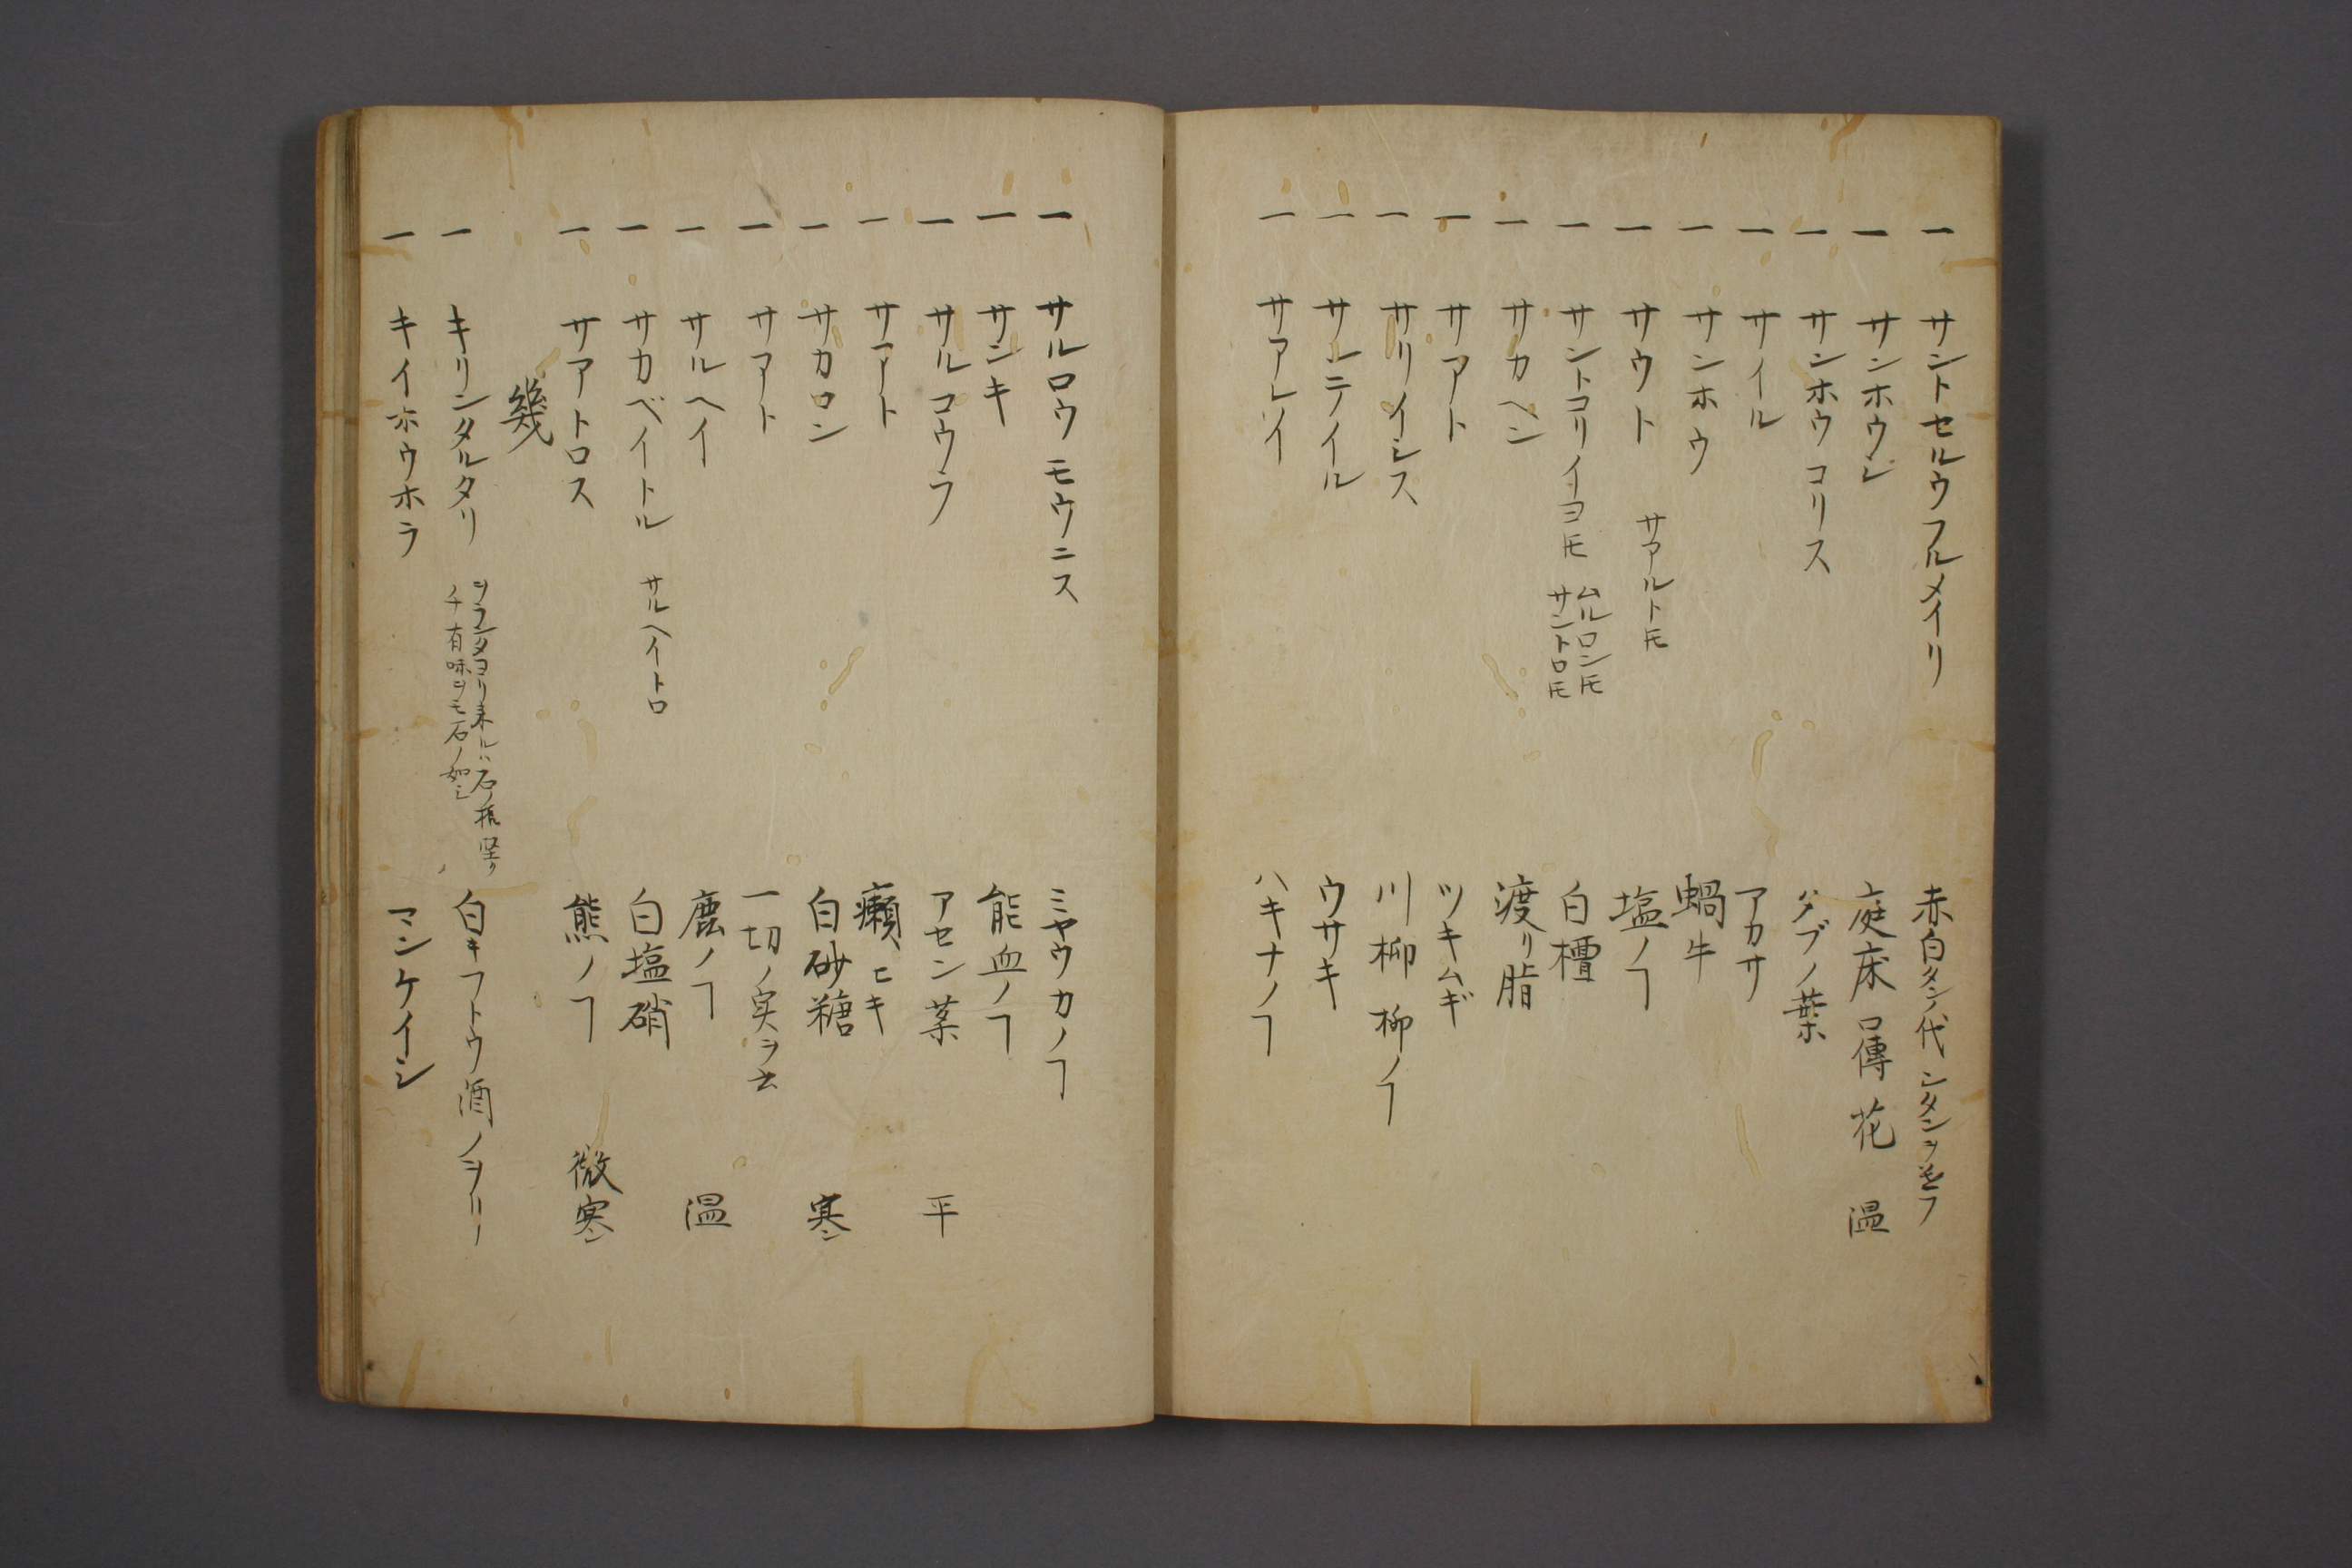 一 サントセルウフルメイリ 赤白タンノ代 シタンヲモ云フ
一 サンホウレ 庭床 口傳 花 温
一 サンホウコリス タブノ葉
一 サイル アカサ
一 サンホウ 蝸牛
一 サウト サアルトモ 塩ノヿ
一 サントコリイヨモ ムルロンモ サントロモ 白檀
一 サカヘン 渡リ脂
一 サアト ツキムギ
一 サリイレス 川柳 柳ノヿ
一 サンニイル ウサキ
一 サアレイ ハキナノヿ
一 サルロウモウニス ミヤウカノヿ
一 サンキ 能血ノヿ
一 サルコウラ アセン葉 平
一 サアト 癩ヒキ
一 サカロン 白砂糖 寒
一 サアト 一切ノ実ヲ云
一 サルヘイ 鹿ノヿ 温
一 サカベイトル サルヘイトロ 白塩硝
一 サアトロス 熊ノヿ 微寒
幾
一 キリンタルタリ ヲランタヨリ来ルハ石ノ 堅ク チ有味ヲモ石ノ如シ 白キフトウ酒ノヲリノ
一 キイホウホラ マンケイシ